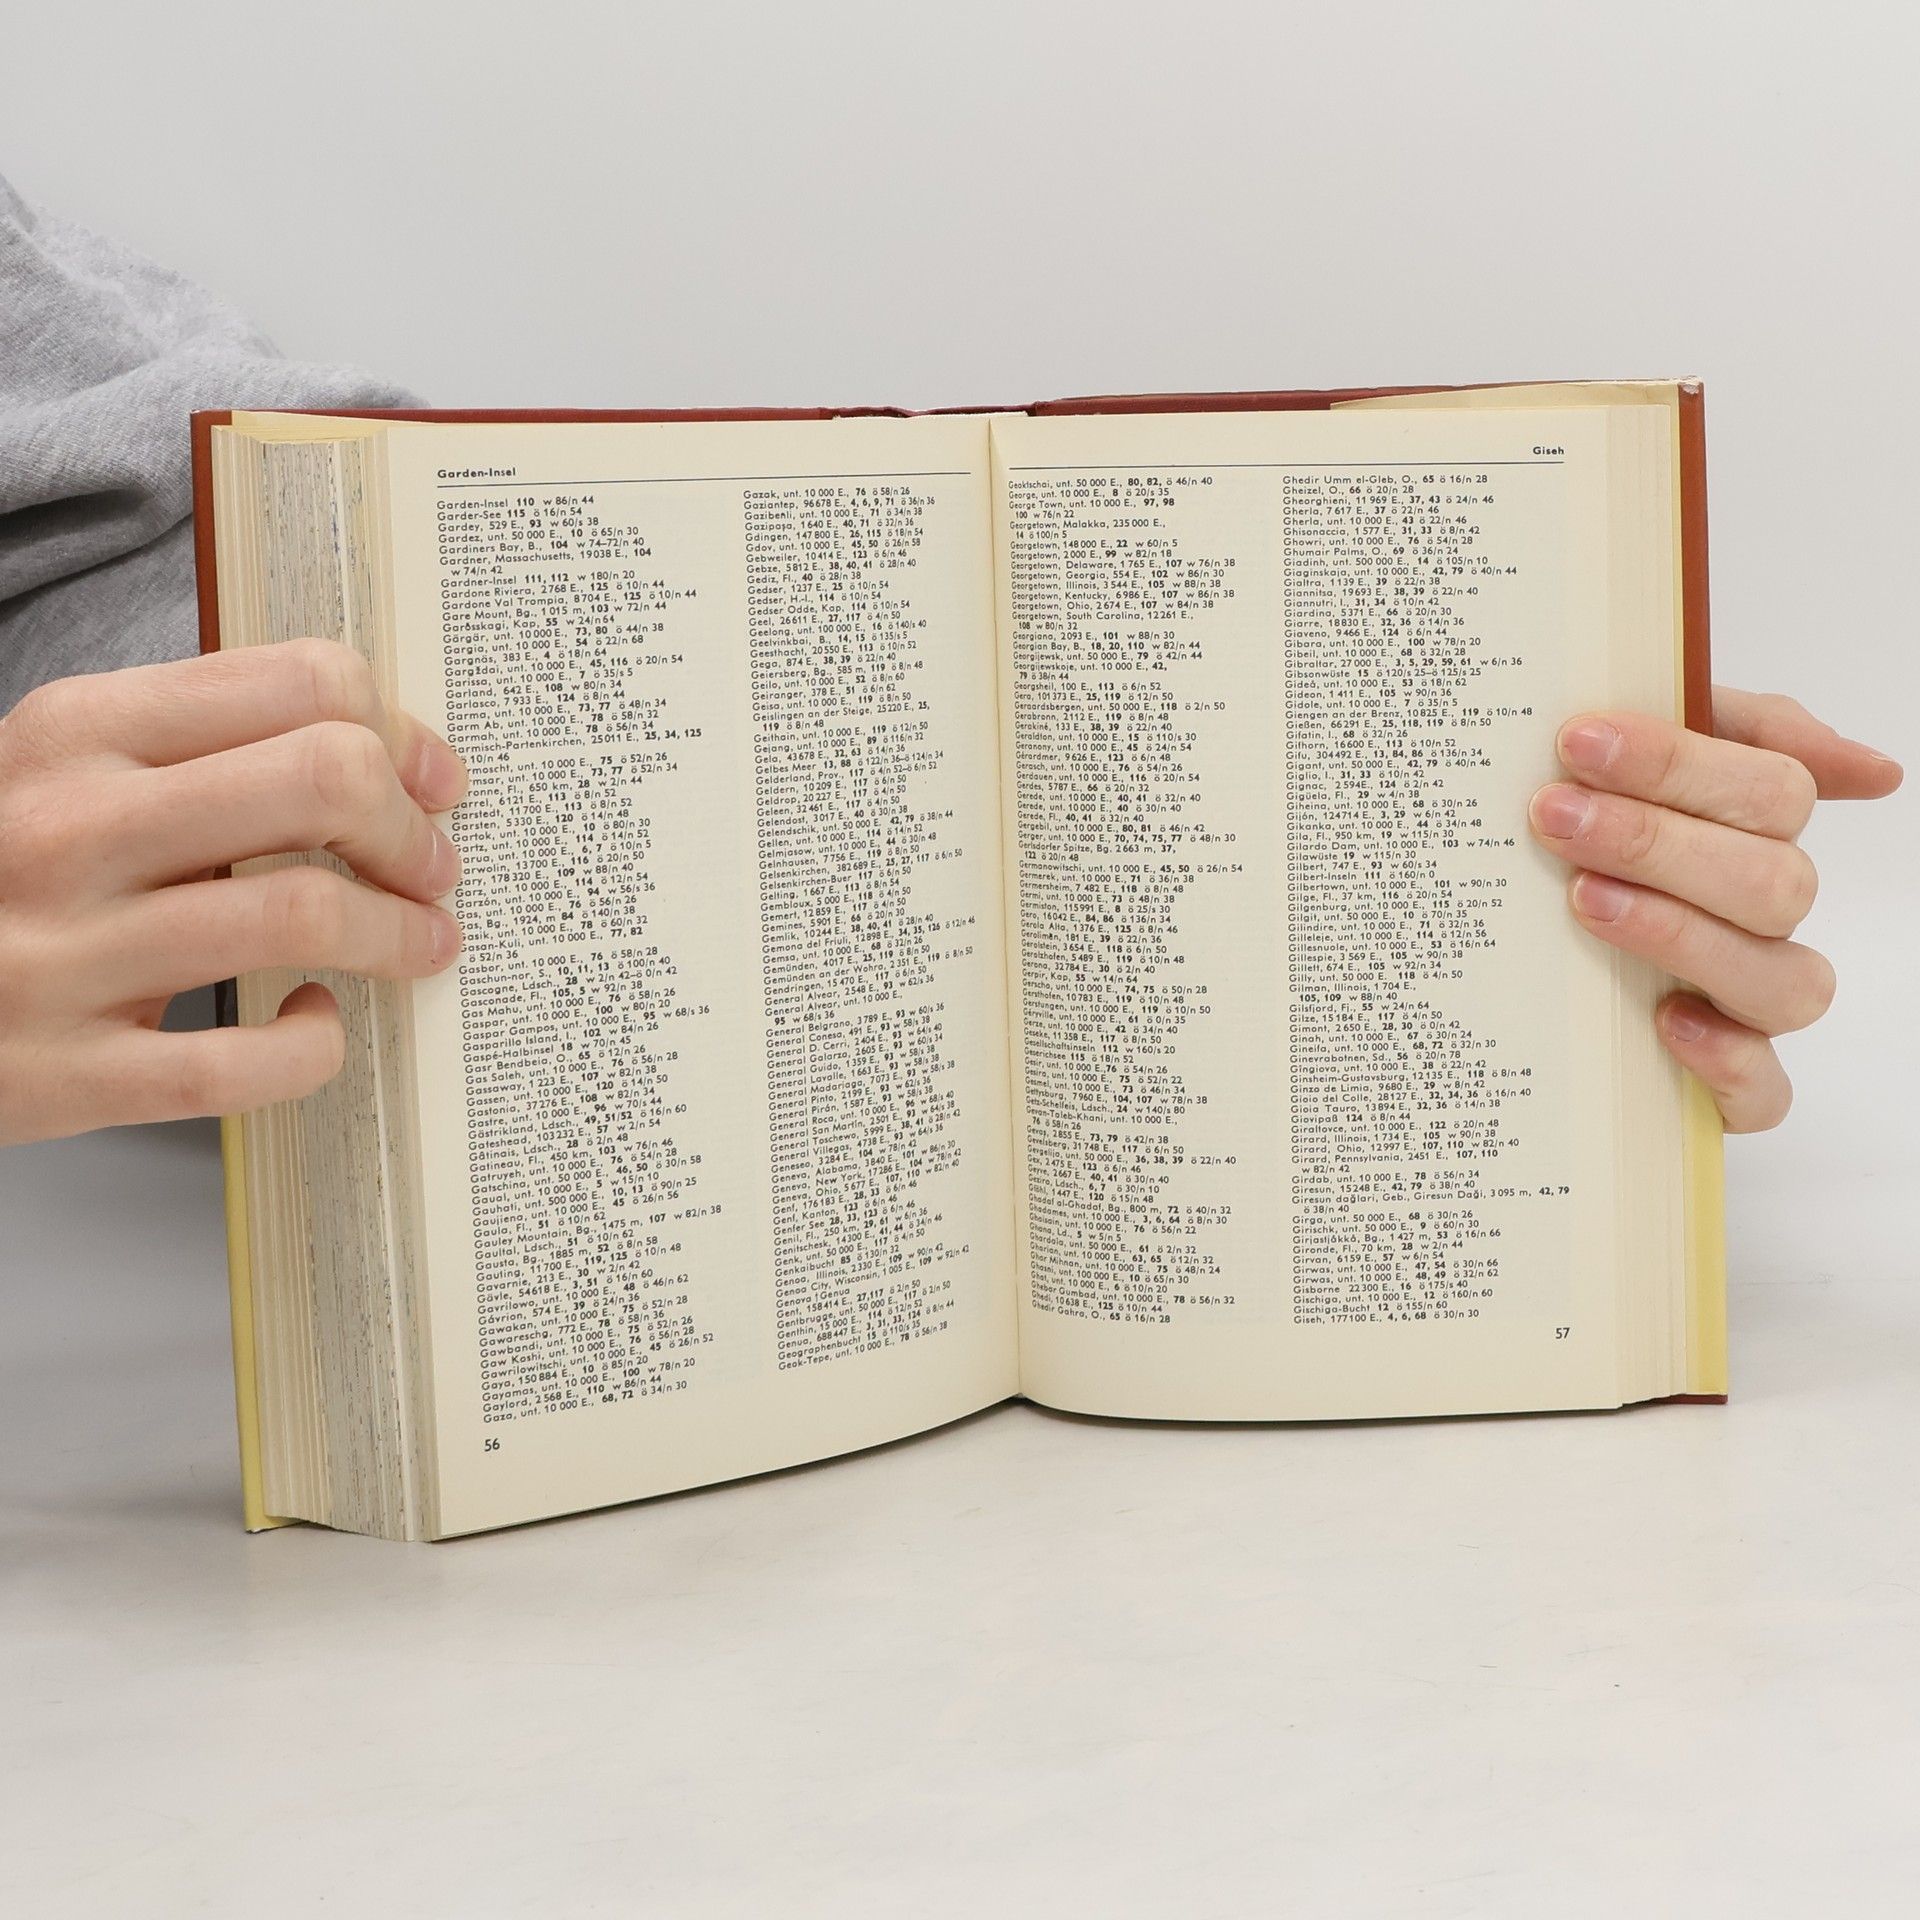 Garden-Insel
Garden-Insel 110 w 86/n 44
Garder-See 115 ö 16/n 54
Gardey, 529 E., 93 w 60/s 38
Gardez, unt. 50 000 E., 10 ö 65/n 30
Gardiners Bay, B., 104 w 74–72/n 40
Gardner, Massachusetts, 19 038 E., 104
w 74/n 42
Gardner-Insel 111, 112 w 180/n 20
Gardone Riviera, 2 768 E., 125 ö 10/n 44
Gardone Val Trompia, 8 704 E., 125 ö 10/n 44
Gare Mount, Bg., 1 015 m, 103 w 72/n 44
Garðsskagi, Kap, 55 w 24/n 64
Gärgär, unt. 10 000 E., 73, 80 ö 44/n 38
Gargia, unt. 10 000 E., 54 ö 22/n 68
Gargnäs, 383 E., 4 ö 18/n 64
Gargždai, unt. 10 000 E., 45, 116 ö 20/n 54
Garissa, unt. 10 000 E., 7 ö 35/s 5
Garland, 642 E., 108 w 80/n 34
Garlasco, 7 933 E., 124 ö 8/n 44
Garma, unt. 10 000 E., 73, 77 ö 48/n 34
Garm Ab, unt. 10 000 E., 78 ö 58/n 32
Garmah, unt. 10 000 E., 78 ö 56/n 34
armisch-Partenkirchen, 25 011 E., 25, 34, 125
10/n 46
rmoscht, unt. 10 000 E., 75 ö 52/n 26
rmsar, unt. 10 000 E., 73, 77 ö 52/n 34
ronne, Fl., 650 km, 28 w 2/n 44
arrel, 6 121 E., 113 ö 8/n 52
Garstedt, 11 700 E., 113 ö 8/n 52
Garsten, 5 330 E., 120 ö 14/n 48
Gartok, unt. 10 000 E., 10 ö 80/n 30
artz, unt. 10 000 E., 114 ö 14/n 52
arua, unt. 10 000 E., 6, 7 ö 10/n 5
arwolin, 13 700 E., 116 ö 20/n 50
ary, 178 320 E., 109 w 88/n 40
Garz, unt. 10 000 E., 114 ö 12/n 54
Garzón, unt. 10 000 E., 94 w 56/s 36
Gas, unt. 10 000 E., 76 ö 56/n 26
Gas, Bg., 1924, m 84 ö 140/n 38
asik, unt. 10 000 E., 78 ö 60/n 32
asan-Kuli, unt. 10 000 E., 77, 82
ö 52/n 36
Gasbor, unt. 10 000 E., 76 ö 58/n 28
Gaschun-nor, S., 10, 11, 13 ö 100/n 40
Gascogne, Ldsch., 28 w 2/n 42–0/n 42
Gasconade, Fl., 105, 5 w 92/n 38
Gas Mahu, unt. 10 000 E., 76 ö 58/n 26
Gaspar, unt. 10 000 E., 100 w 80/n 20
Gaspar Campos, unt. 10 000 E., 95 w 68/s 36
Gasparillo Island, I., 102 w 84/n 26
Gaspé-Halbinsel 18 w 70/n 45
Gasr Bendbeia, O., 65 ö 12/n 26
Gas Saleh, unt. 10 000 E., 76 ö 56/n 28
Gassaway, 1 223 E., 107 w 82/n 38
Gassen, unt. 10 000 E., 120 ö 14/n 50
Gastonia, 37 276 E., 108 w 82/n 34
Gastre, unt. 10 000 E., 96 w 70/s 44
Gästrikland, Ldsch., 49, 51/52 ö 16/n 60
Gateshead, 103 232 E., 57 w 2/n 54
Gâtinais, Ldsch., 28 ö 2/n 48
Gatineau, Fl., 450 km, 103 w 76/n 46
Gatruyeh, unt. 10 000 E., 76 ö 54/n 28
Gatschina, unt. 50 000 E., 46, 50 ö 30/n 58
Gaual, unt. 10 000 E., 5 w 15/n 10
Gauhati, unt. 500 000 E., 10, 13 ö 90/n 25
Gaujiena, unt. 10 000 E., 45 ö 26/n 56
Gaula, Fl., 51 ö 10/n 62
Gauley Mountain, Bg., 1475 m, 107 w 82/n 38
Gaultal, Ldsch., 51 ö 10/n 62
Gausta, Bg., 1885 m, 52 ö 8/n 58
Gauting, 11 700 E., 119, 125 ö 10/n 48
Gavarnie, 213 E., 30 w 2/n 42
Gävle, 54 618 E., 3, 51 ö 16/n 60
Gavrilowo, unt. 10 000 E., 48 ö 46/n 62
Gávrion, 574 E., 39 ö 24/n 36
Gawakan, unt. 10 000 E., 75 ö 52/n 28
Gawareschg, 772 E., 78 ö 58/n 36
Gawbandi, unt. 10 000 E., 75 ö 52/n 26
Gaw Koshi, unt. 10 000 E., 76 ö 56/n 28
Gawrilowitschi, unt. 10 000 E., 45 ö 26/n 52
Gaya, 150 884 E., 10 ö 85/n 20
Gayamas, unt. 10 000 E., 100 w 78/n 20
Gaylord, 2 568 E., 110 w 86/n 44
Gaza, unt. 10 000 E., 68, 72 ö 34/n 30
56
Gazak, unt. 10 000 E., 76 ö 58/n 26
Gaziantep, 96 678 E., 4, 6, 9, 71 ö 36/n 36
Gazibenli, unt. 10 000 E., 71 ö 34/n 38
Gazipaşa, 1 640 E., 40, 71 ö 32/n 36
Gdingen, 147 800 E., 26, 115 ö 18/n 54
Gdov, unt. 10 000 E., 45, 50 ö 26/n 58
Gebweiler, 10 414 E., 123 ö 6/n 46
Gebze, 5 812 E., 38, 40, 41 ö 28/n 40
Gediz, Fl., 40 ö 28/n 38
Gedser, 1237 E., 25 ö 10/n 54
Gedser, H.-I., 114 ö 10/n 54
Gedser Odde, Kap, 114 ö 10/n 54
Geel, 26 611 E., 27, 117 ö 4/n 50
Geelong, unt. 100 000 E., 16 ö 140/s 40
Geelvinkbai, B., 14, 15 ö 135/s 5
Geesthacht, 20 550 E., 113 ö 10/n 52
Gega, 874 E., 38, 39 ö 22/n 40
Geiersberg, Bg., 585 m, 119 ö 8/n 48
Geilo, unt. 10 000 E., 52 ö 8/n 60
Geiranger, 378 E., 51 ö 6/n 62
Geisa, unt. 10 000 E., 119 ö 8/n 50
Geislingen an der Steige, 25 220 E., 25,
119 ö 8/n 48
Geithain, unt. 10 000 E., 119 ö 12/n 50
Gejang, unt. 10 000 E., 89 ö 116/n 32
Gela, 43 678 E., 32, 63 ö 14/n 36
Gelbes Meer 13, 88 ö 122/n 36–ö 124/n 34
Gelderland, Prov., 117 ö 4/n 52–ö 6/n 52
Geldern, 10 209 E., 117 ö 6/n 50
Geldrop, 20 227 E., 117 ö 4/n 50
Geleen, 32 461 E., 117 ö 4/n 50
Gelendost, 3 017 E., 40 ö 30/n 38
Gelendschik, unt. 50 000 E., 42, 79 ö 38/n 44
Gellen, unt. 10 000 E., 114 ö 14/n 52
Gelmjasow, unt. 10 000 E., 44 ö 30/n 48
Gelnhausen, 7 756 E., 119 ö 8/n 50
Gelsenkirchen, 382 689 E., 25, 27, 117 ö 6/n 50
Gelsenkirchen-Buer 117 ö 6/n 50
Gelting, 1 667 E., 113 ö 8/n 54
Gembloux, 5 000 E., 118 ö 4/n 50
Gemert, 12 859 E., 117 ö 4/n 50
Gemines, 5 901 E., 66 ö 20/n 30
Gemlik, 10 244 E., 38, 40, 41 ö 28/n 40
Gemona del Friuli, 12 898 E., 34, 35, 126 ö 12/n 46
Gemsa, unt. 10 000 E., 68 ö 32/n 26
Gemünden, 4017 E., 25, 119 ö 8/n 50
Gemünden an der Wohra, 2 351 E., 119 ö 8/n 50
Gendringen, 15 470 E., 117 ö 6/n 50
General Alvear, 2 548 E., 93 w 62/s 36
General Alvear, unt. 10 000 E.,
95 w 68/s 36
General Belgrano, 3 789 E., 93 w 60/s 36
General Conesa, 491 E., 93 w 58/s 38
General D. Cerri, 2 404 E., 93 w 64/s 40
General Galarza, 2 605 E., 93 w 60/s 34
General Guido, 1 359 E., 93 w 58/s 38
General Lavalle, 1 663 E., 93 w 58/s 38
General Madariaga, 7 073 E., 93 w 58/s 38
General Pinto, 2199 E., 93 w 62/s 36
General Pirán, 1 587 E., 93 w 58/s 38
General Roca, unt. 10 000 E., 96 w 68/s 40
General San Martin, 2501 E., 93 w 64/s 38
General Toschewo, 5 999 E., 38, 41 ö 28/n 42
General Villegas, 4 738 E., 93 w 64/s 36
Geneseo, 3 284 E., 104 w 78/n 42
Geneva, Alabama, 3 840 E., 101 w 86/n 30
Geneva, New York, 17 286 E., 104 w 78/n 42
Geneva, Ohio, 5 677 E., 107, 110 w 82/n 40
Genf, 176 183 E., 28, 33 ö 6/n 46
Genf, Kanton, 123 ö 6/n 46
Genfer See 28, 33, 123 ö 6/n 46
Genil, Fl., 250 km, 29, 61 w 6/n 36
Genitschesk, 14 300 E., 41, 44 ö 34/n 46
Genk, unt. 50 000 E., 117 ö 4/n 50
Genkaibucht 85 ö 130/n 32
Genoa, Illinois, 2 330 E., 109 w 90/n 42
Genoa City, Wisconsin, 1 005 E., 109 w 92/n 42
Genova ↑ Genua
Gent, 158 414 E., 27, 117 ö 2/n 50
Gentbrugge, unt. 50 000 E., 117 ö 2/n 50
Genthin, 15 000 E., 114 ö 12/n 52
Genua, 688 447 E., 3, 31, 33, 124 ö 8/n 44
Geographenbucht 15 ö 110/s 35
Geok-Tepe, unt. 10 000 E., 78 ö 56/n 38
Giseh
Geoktschai, unt. 50 000 E., 80, 82, ö 46/n 40
George, unt. 10 000 E., 8 ö 20/s 35
George Town, unt. 10 000 E., 97, 98
100 w 76/n 22
Georgetown, Malakka, 235 000 E.,
14 ö 100/n 5
Georgetown, 148 000 E., 22 w 60/n 5
Georgetown, 2 000 E., 99 w 82/n 18
Georgetown, Delaware, 1 765 E., 107 w 76/n 38
Georgetown, Georgia, 554 E., 102 w 86/n 30
Georgetown, Illinois, 3 544 E., 105 w 88/n 38
Georgetown, Kentucky, 6 986 E., 107 w 86/n 38
Georgetown, Ohio, 2 674 E., 107 w 84/n 38
Georgetown, South Carolina, 12 261 E.,
108 w 80/n 32
Georgiana, 2093 E., 101 w 88/n 30
Georgian Bay, B., 18, 20, 110 w 82/n 44
Georgijewsk, unt. 50 000 E., 79 ö 42/n 44
Georgijewskoje, unt. 10 000 E., 42,
79 ö 38/n 44
Georgsheil, 100 E., 113 ö 6/n 52
Gera, 101 373 E., 25, 119 ö 12/n 50
Geraardsbergen, unt. 50 000 E., 118 ö 2/n 50
Gerabronn, 2112 E., 119 ö 8/n 48
Gerakiné, 133 E., 38, 39 ö 22/n 40
Geraldton, unt. 10 000 E., 15 ö 110/s 30
Geranony, unt. 10 000 E., 45 ö 24/n 54
Gérardmer, 9 626 E., 123 ö 6/n 48
Gerasch, unt. 10 000 E., 76 ö 54/n 26
Gerdauen, unt. 10 000 E., 116 ö 20/n 54
Gerdes, 5787 E., 66 ö 20/n 32
Gerede, unt. 10 000 E., 40, 41 ö 32/n 40
Gerede, unt. 10 000 E., 40 ö 30/n 40
Gerede, Fl., 40, 41 ö 32/n 40
Gergebil, unt. 10 000 E., 80, 81 ö 46/n 42
Gerger, unt. 10 000 E., 70, 74, 75, 77 ö 48/n 30
Gerlsdorfer Spitze, Bg. 2 663 m, 37,
122 ö 20/n 48
Germanowitschi, unt. 10 000 E., 45, 50 ö 26/n 54
Germerek, unt. 10 000 E., 71 ö 36/n 38
Germersheim, 7 482 E., 118 ö 8/n 48
Germi, unt. 10 000 E., 73 ö 48/n 38
Germiston, 115 991 E., 8 ö 25/s 30
Gero, 16042 E., 84, 86 ö 136/n 34
Gerola Alta, 1 376 E., 125 ö 8/n 46
Gerolimēn, 181 E., 39 ö 22/n 36
Gerolstein, 3 654 E., 118 ö 6/n 50
Gerolzhofen, 5 489 E., 119 ö 10/n 48
Gerona, 32 784 E., 30 ö 2/n 40
Gerpir, Kap, 55 w 14/n 64
Gerscha, unt. 10 000 E., 74, 75 ö 50/n 28
Gersthofen, 10 783 E., 119 ö 10/n 48
Gerstungen, unt. 10 000 E., 119 ö 10/n 50
Géryville, unt. 10 000 E., 61 ö 0/n 35
Gerze, unt. 10 000 E., 42 ö 34/n 40
Geseke, 11 358 E., 117 ö 8/n 50
Gesellschaftsinseln 112 w 160/s 20
Geserichsee 115 ö 18/n 52
Gesir, unt. 10 000 E., 76 ö 54/n 26
Gesira, unt. 10 000 E., 75 ö 52/n 22
Gesmel, unt. 10 000 E., 73 ö 46/n 34
Gettysburg, 7 960 E., 104, 107 w 78/n 38
Getz-Schelfeis, Ldsch., 24 w 140/s 80
Gevan-Taleb-Khani, unt. 10 000 E.,
76 ö 58/n 26
Gevaş, 2855 E., 73, 79 ö 42/n 38
Gevelsberg, 31 748 E., 117 ö 6/n 50
Gevgelija, unt. 50 000 E., 36, 38, 39 ö 22/n 40
Gex, 2 475 E., 123 ö 6/n 46
Geyve, 2 667 E., 40, 41 ö 30/n 40
Geziro, Ldsch., 6, 7 ö 30/n 10
Gföhl, 1 447 E., 120 ö 15/n 48
Ghadaf al-Ghadaf, Bg., 800 m, 72 ö 40/n 32
Ghadames, unt. 10 000 E., 3, 6, 64 ö 8/n 30
Ghaisain, unt. 10 000 E., 76 ö 56/n 22
Ghana, Ld., 5 w 5/n 5
Ghardaia, unt. 50 000 E., 61 ö 2/n 32
Gharian, unt. 10 000 E., 63, 65 ö 12/n 32
Ghar Mihnan, unt. 10 000 E., 75 ö 48/n 24
Ghasni, unt. 100 000 E., 10 ö 65/n 30
Ghat, unt. 10 000 E., 6 ö 10/n 20
Ghebar Gumbad, unt. 10 000 E., 78 ö 56/n 32
Ghedi, 10 638 E., 125 ö 10/n 44
Ghedir Gahra, O., 65 ö 16/n 28
Ghedir Umm el-Gleb, O., 65 ö 16/n 28
Gheizel, O., 66 ö 20/n 28
Gheorghieni, 11 969 E., 37, 43 ö 24/n 46
Gherla, 7 617 E., 37 ö 22/n 46
Gherla, unt. 10 000 E., 43 ö 22/n 46
Ghisonaccia, 1 577 E., 31, 33 ö 8/n 42
Ghowri, unt. 10 000 E., 76 ö 54/n 28
Ghumair Palms, O., 69 ö 36/n 24
Giadinh, unt. 500 000 E., 14 ö 105/n 10
Giaginskaja, unt. 10 000 E., 42, 79 ö 40/n 44
Gialtra, 1 139 E., 39 ö 22/n 38
Giannitsa, 19 693 E., 38, 39 ö 22/n 40
Giannutri, I., 31, 34 ö 10/n 42
Giardina, 5 371 E., 66 ö 20/n 30
Giarre, 18 830 E., 32, 36 ö 14/n 36
Giaveno, 9 466 E., 124 ö 6/n 44
Gibara, unt. 10 000 E., 100 w 78/n 20
Gibeil, unt. 10 000 E., 68 ö 32/n 28
Gibraltar, 27 000 E., 3, 5, 29, 59, 61 w 6/n 36
Gibsonwüste 15 ö 120/s 25–ö 125/s 25
Gideå, unt. 10 000 E., 53 ö 18/n 62
Gideon, 1 411 E., 105 w 90/n 36
Gidole, unt. 10 000 E., 7 ö 35/n 5
Giengen an der Brenz, 10 825 E., 119 ö 10/n 48
Gießen, 66 291 E., 25, 118, 119 ö 8/n 50
Gifatin, I., 68 ö 32/n 26
Gifhorn, 16 600 E., 113 ö 10/n 52
Gifu, 304 492 E., 13, 84, 86 ö 136/n 34
Gigant, unt. 50 000 E., 42, 79 ö 40/n 46
Giglio, I., 31, 33 ö 10/n 42
Gignac, 2 594E., 124 ö 2/n 42
Gigüela, Fl., 29 w 4/n 38
Giheina, unt. 10 000 E., 68 ö 30/n 26
Gijón, 124 714 E., 3, 29 w 6/n 42
Gikanka, unt. 10 000 E., 44 ö 34/n 48
Gila, Fl., 950 km, 19 w 115/n 30
Gilardo Dam, unt. 10 000 E., 103 w 74/n 46
Gilawüste 19 w 115/n 30
Gilbert, 747 E., 93 w 60/s 34
Gilbert-Inseln 111 ö 160/n 0
Gilbertown, unt. 10 000 E., 101 w 90/n 30
Gilge, Fl., 37 km, 116 ö 20/n 54
Gilgenburg, unt. 10 000 E., 115 ö 20/n 52
Gilgit, unt. 50 000 E., 10 ö 70/n 35
Gilindire, unt. 10 000 E., 71 ö 32/n 36
Gilleleje, unt. 10 000 E., 114 ö 12/n 56
Gillesnuole, unt. 10 000 E., 53 ö 16/n 64
Gillespie, 3 569 E., 105 w 90/n 38
Gillett, 674 E., 105 w 92/n 34
Gilly, unt. 50 000 E. 118 ö 4/n 50
Gilman, Illinois, 1 704 E.,
105, 109 w 88/n 40
Gilsfjord, Fj., 55 w 24/n 64
Gilze, 15 184 E., 117 ö 4/n 50
Gimont, 2 650 E., 28, 30 ö 0/n 42
Ginah, unt. 10 000 E., 67 ö 30/n 24
Gineifa, unt. 10 000 E., 68, 72 ö 32/n 30
Ginevrabotnen, Sd., 56 ö 20/n 78
Gîngiova, unt. 10 000 E., 38 ö 22/n 42
Ginsheim-Gustavsburg, 12 135 E., 118 ö 8/n 48
Ginzo de Limia, 9 680 E., 29 w 8/n 42
Gioia del Colle, 28 127 E., 32, 34, 36 ö 16/n 40
Gioia Tauro, 13 894 E., 32, 36 ö 14/n 38
Giovipaß 124 ö 8/n 44
Giraltovce, unt. 10 000 E., 122 ö 20/n 48
Girard, Illinois, 1 734 E., 105 w 90/n 38
Girard, Ohio, 12 997 E., 107, 110 w 82/n 40
Girard, Pennsylvania, 2451 E., 107, 110
w 82/n 42
Girdab, unt. 10 000 E., 78 ö 56/n 34
Giresun, 15 248 E., 42, 79 ö 38/n 40
Giresun dağlari, Geb., Giresun Daği, 3 095 m, 42, 79
ö 38/n 40
Girga, unt. 50 000 E., 68 ö 30/n 26
Girischk, unt. 50 000 E., 9 ö 60/n 30
Girjastjåkkå, Bg., 1 427 m, 53 ö 16/n 66
Gironde, Fl., 70 km, 28 w 2/n 44
Girvan, 6159 E., 57 w 6/n 54
Girwas, unt. 10 000 E., 47, 54 ö 30/n 66
Girwas, unt. 10 000 E., 48, 49 ö 32/n 62
Gisborne 22 300 E., 16 ö 175/s 40
Gischiga, unt. 10 000 E., 12 ö 160/n 60
Gischiga-Bucht 12 ö 155/n 60
Giseh, 177 100 E., 4, 6, 68 ö 30/n 30
57